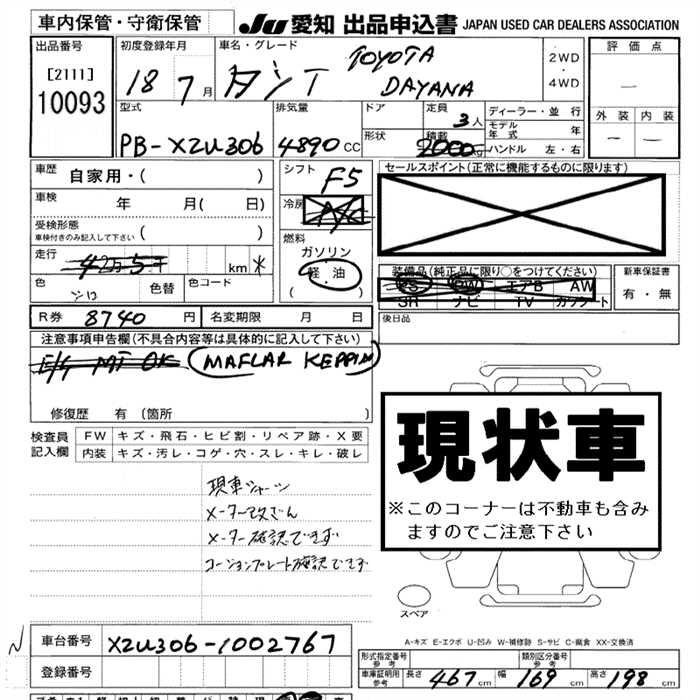 車内保管・守衛保管 JU 愛知 出品申込書 JAPAN USED CAR DEALERS ASSOCIATION
出品番号 初度登録年月 車名・グレード 2WD ・ 4WD 評価点
[2111] 18 7月 タシT TOYOTA DAYANA —
10093 外装 内装
型式 排気量 ドア 定員 3人 ディーラー・並行
PB-XZU306 4890cc 形状 積載 2000kg モデル年式 年 — —
ハンドル 左・右
車歴 自家用・( ) シフト F5 セールスポイント(正常に機能するものに限ります)
車検 年 月( 日) 冷房 A/C
受検形態
車検付きのみ記入して下さい ( ) 燃料
ガソリン
走行 42万5千 km 軽油 装備品(純正品に限り○をつけてください) 新車保証書
( ) PS PW エアB AW 有・無
色 シロ 色替 色コード SR ナビ TV カワシート
R券 8740円 名変期限 月 日 後日品
注意事項申告欄(不具合内容等は具体的に記入して下さい)
E/G MT OK MAFLAR KEPPIN
修復歴 有(箇所 )
検査員記入欄 FW キズ・飛石・ヒビ割・リペア跡・X要
内装 キズ・汚レ・コゲ・穴・スレ・キレ・破レ
現状車
※このコーナーは不動車も含み
ますのでご注意下さい
現車シャーシ
メーター改ざん
メーター確認できず
コーションプレート確認できず
スペア
A-キズ E-エクボ U-凹み W-補修跡 S-サビ C-腐食 XX-交換済
車台番号 XZU306-1002767
形式指定番号 参考 類別区分番号 参考
登録番号 車庫証明用 参考 長さ 467cm 幅 169cm 高さ 198cm